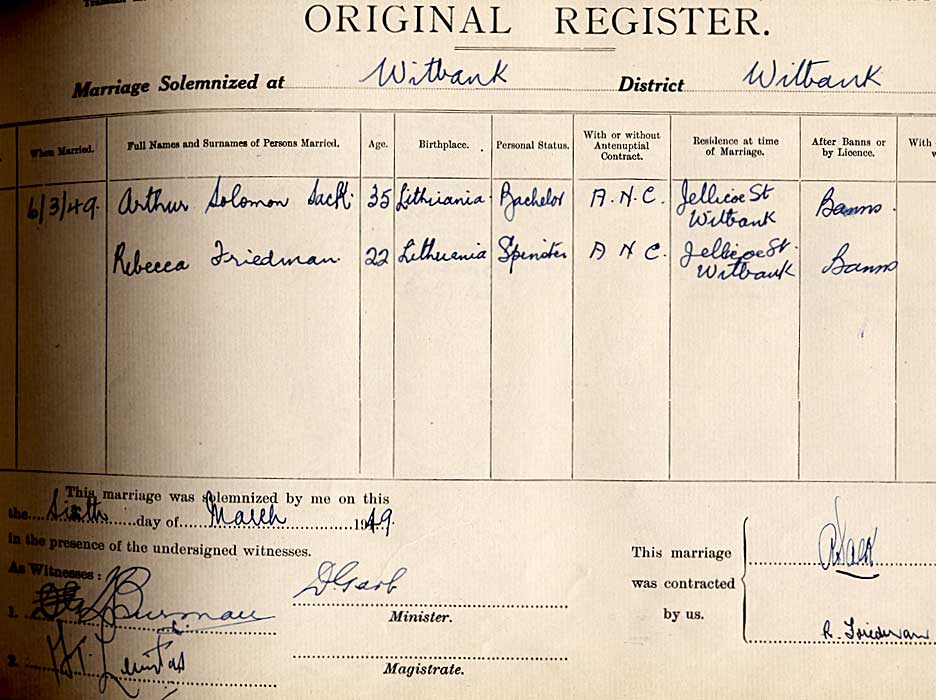 ORIGINAL REGISTER.
Marriage Solemnized at Witbank District Witbank
When Married. Full Names and Surnames of Persons Married. Age. Birthplace. Personal Status. With or without Antenuptial Contract. Residence at time of Marriage. After Banns or by Licence. With
6/3/49. Arthur Solomon Sack. 35 Lithuania. Bachelor A.N.C. Jellicoe St Witbank Banns.
Rebecca Friedman. 22 Lithuania Spinster A N C. Jellicoe St. Witbank Banns
This marriage was solemnized by me on this
the Sixth day of March 1949.
in the presence of the undersigned witnesses.
As Witnesses:
1.
D Garb
Minister.
2.
Magistrate.
This marriage
was contracted
by us.
A Sack
R. Friedman